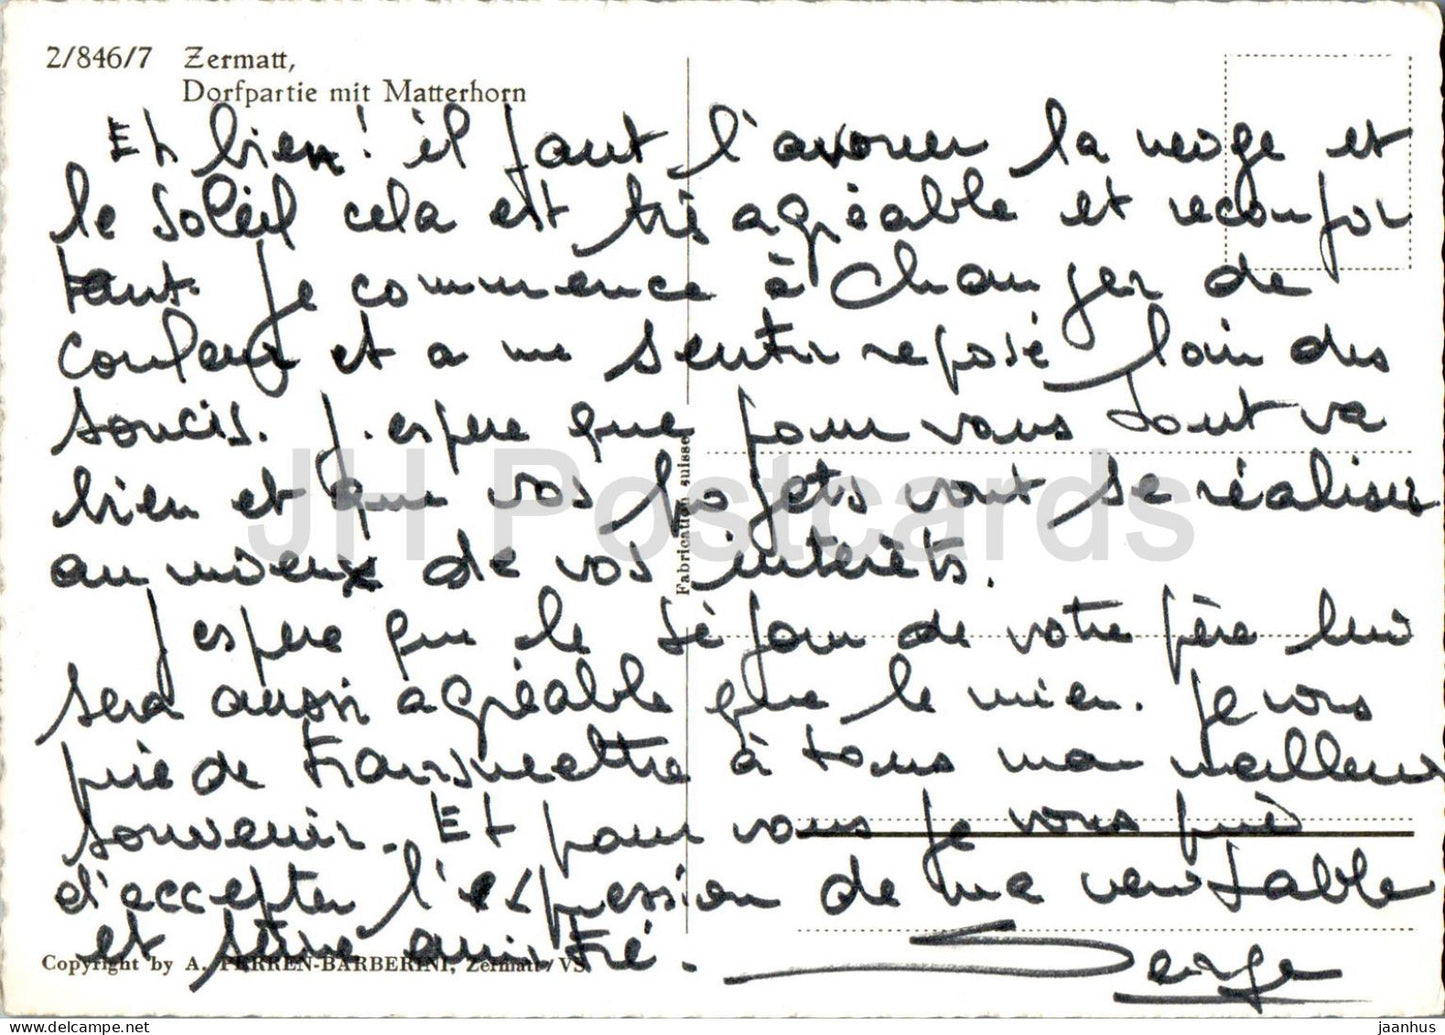 2/846/7 Zermatt,
Dorfpartie mit Matterhorn
Et bien! il faut l'avouer la neige et
le soleil cela est tré agréable et reconfor
tant. Je commence à changer de
couleur et a me sentir reposé loin des
soucis. J.espere que pour vous tout va
bien et que vos projets vont se réaliser
au mieux de vos interêts.
J espere que le séjour de votre père lui
sera aussi agréable que le mien. Je vous
prie de transmettre à tous mon meilleur
souvenir. Et pour vous je vous prie
d'accepter l'expression de ma veritable
et amitié.
Serge
Fabrication suisse
Copyright by A. PERREN-BARBERINI, Zermatt/VS
JH Postcards
jaanhusz.com